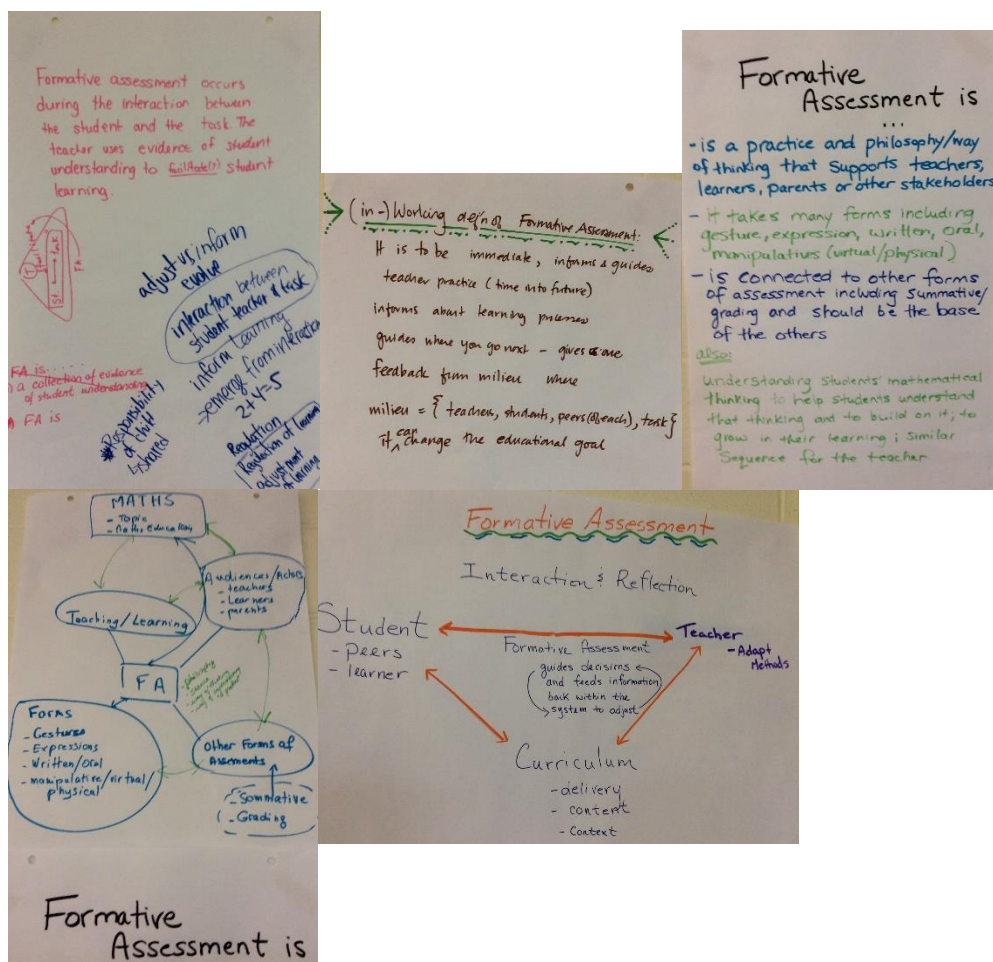 Formative assessment occurs
during the interaction between
the student and the task. The
teacher uses evidence of student
understanding to facilitate(?) student
learning.
FA
adjust vs/inform
evolve
interaction between
student teacher & task
inform learning
→emerge from interaction
2+y=5
FA is.....
a collection of evidence
of student understanding
FA is
Responsibility
of
shared
Regulation
Regulation of learning
adjustment
of learning
(in-) Working def'n of Formative Assessment:
It is to be immediate, informs & guides
teacher practice (time into future)
informs about learning processes
guides where you go next – gives one
feedback from milieu where
milieu = { teachers, students, peers (of each), task }
it can change the educational goal
Formative
Assessment is
...
- is a practice and philosophy/way
of thinking that supports teachers,
learners, parents or other stakeholders
- It takes many forms including
gesture, expression, written, oral,
manipulatives (virtual/physical)
- is connected to other forms
of assessment including summative/
grading and should be the base
of the others
also:
understanding students' mathematical
thinking to help students understand
that thinking and to build on it; to
grow in their learning; similar
sequence for the teacher
MATHS
- Topic
- Maths education
Audiences/Actors
- teachers
- Learners
- parents
Teaching/Learning
FA
- philosophy
FORMS
- Gestures
- Expressions
- Written/Oral
- manipulative/virtual/
physical
Other Forms of
Assments
- Sommative
- Grading
Formative
Assessment is
Formative Assessment
Interaction & Reflection
Student
- peers
- learner
Teacher
- Adapt
Methods
Formative Assessment
guides decisions
and feeds information
back within the
system to adjust
Curriculum
- delivery
- content
- Context